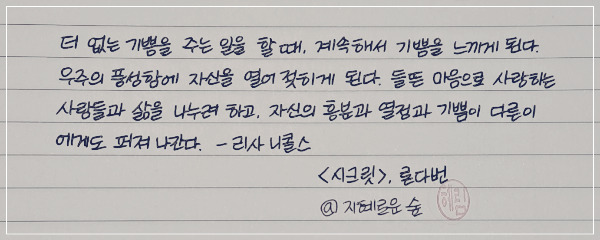 더 없는 기쁨을 주는 일을 할 때, 계속해서 기쁨을 느끼게 된다.
우주의 풍성함에 자신을 열어 젖히게 된다. 들뜬 마음으로 사랑하는
사람들과 삶을 나누려 하고, 자신의 흥분과 열정과 기쁨이 다른이
에게도 퍼져 나간다. - 리사 니콜스
<시크릿>, 론다번
@ 지혜로운 숲
혜림